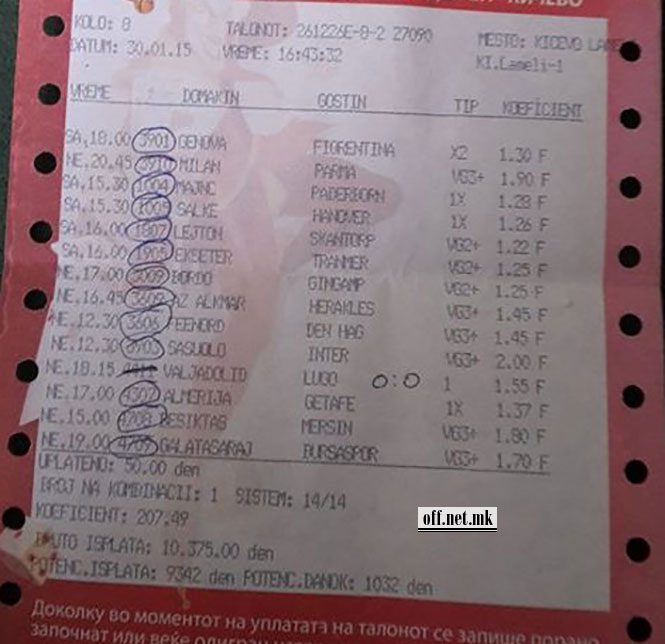 КИЧЕВО
KOLO: 8 TALONOT: 261226E-8-2 27090 MESTO: KICEVO LAME
DATUM: 30.01.15 VREME: 16:43:32 KI.Lameli-1
VREME DOMAKIN GOSTIN TIP KOEFICIENT
SA,18.00 3901 GENOVA FIORENTINA X2 1.30 F
NE.20.45 3910 MILAN PARMA VG3+ 1.90 F
SA,15.30 1004 MAJNC PADERBORN 1X 1.28 F
SA.15.30 1005 SALKE HANOVER 1X 1.26 F
SA.16.00 1807 LEJTON SKANTORP VG2+ 1.22 F
SA.16.00 1905 EKSETER TRANMER VG2+ 1.25 F
NE.17.00 3009 BORDO GINGAMP VG2+ 1.25 F
NE.16.45 3609 AZ ALKMAR HERAKLES VG3+ 1.45 F
NE.12.30 3606 FEENORD DEN HAG VG3+ 1.45 F
NE.12.30 3903 SASUOLO INTER VG3+ 2.00 F
NE.18.15 VALJADOLID LUGO 0:0 1 1.55 F
NE.17.00 4307 ALMERIJA GETAFE 1X 1.37 F
NE.15.00 4708 BESIKTAS MERSIN VG3+ 1.80 F
NE.19.00 4709 GALATASARAJ BURSASPOR VG3+ 1.70 F
UPLATENO: 50.00 den
BROJ NA KOMBINACII: 1 SISTEM: 14/14
KOEFICIENT: 207.49
off.net.mk
BRUTO ISPLATA: 10.375.00 den
POTENC.ISPLATA: 9342 den POTENC.DANOK: 1032 den
Доколку во моментот на уплатата на талонот се запише
започнат или веќе одигран